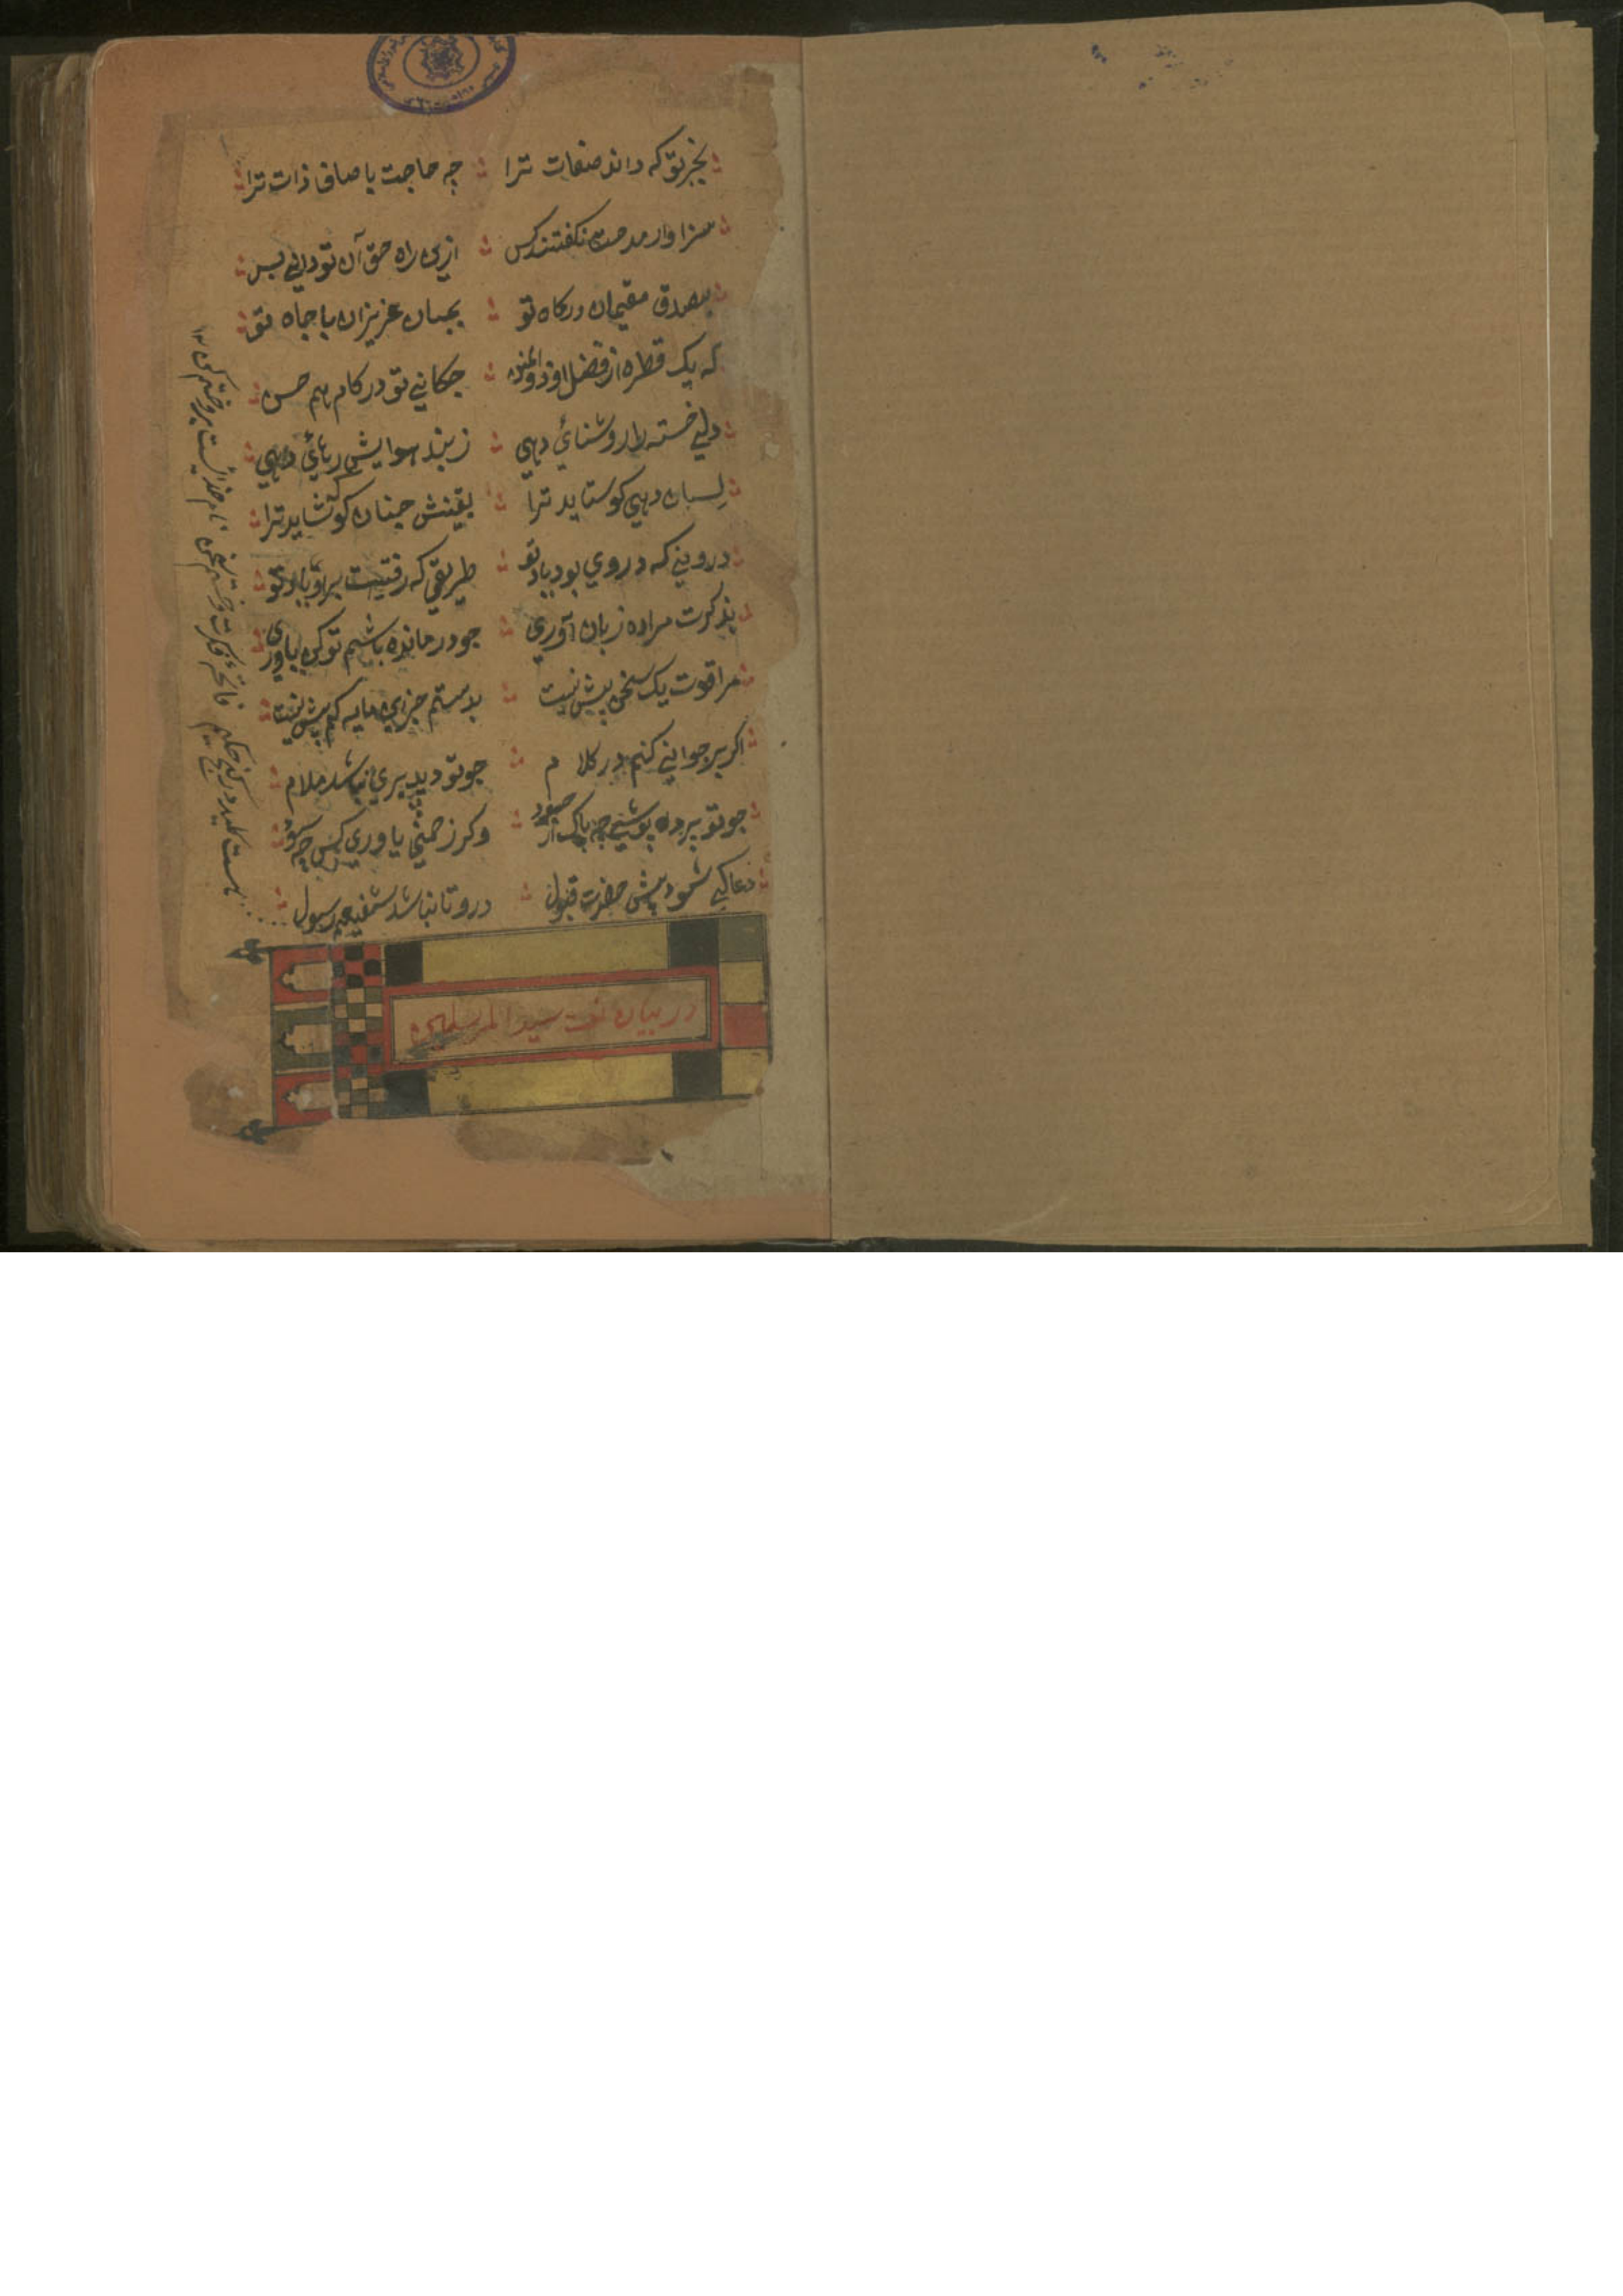 بخبر تو که داند صفات ترا چه حاجت با صاف ذات ترا
سزاوار مدحت نکفتند کس ازین راه حق آن تو دانی بس
بصدق مقیمان درکاه تو بجان عزیزان با جاه تو
که یک قطره از فضل او ذوالمنن چکانی تو در کام هم حسن
دلی خسته را روشنائی دهی ز بند هوایش رهائی دهی
لسان دهی کو ستاید ترا یقینش چنان کو نشاید ترا
دروینی که در وی بود یاد تو طریقی که رفتیت برو یاد تو
بذکرت مراده زبان آوری جو درمانده باشم تو کن یاوری
مرا قوت یک سخن بیش نیست بدستم جز این مایه کم پیش نیست
اکر بر جوانی کنم در کلام جو تو دید پیری نباشد ملام
جو تو پرده پوشی چه باک از وکر زمنی یاوری کس چه سود
دعا کی شود پیش حضرت قبول درو تا نباشد شفیعم رسول
در بیان نعت سید المرسلین
هست کلید در کنج حکیم فاتحه فکرت و ختم سخن نام خدائیست برو ختم کن ۱۲